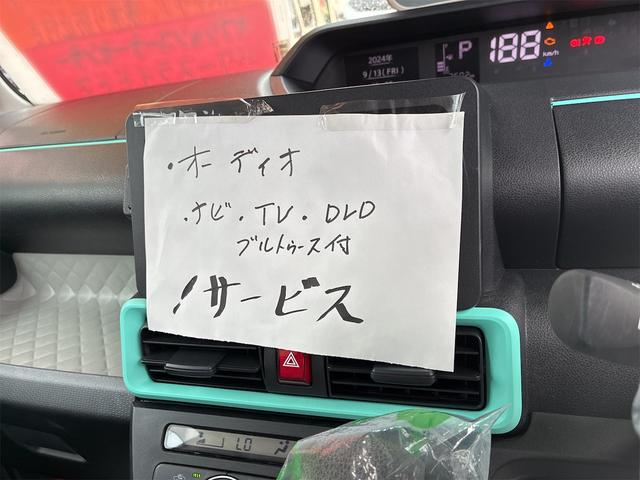 2024年
9/13(FRI)
P
188
km/h
・オーディオ
・ナビ・TV・DVD
ブルトゥース付
!サービス
1.0